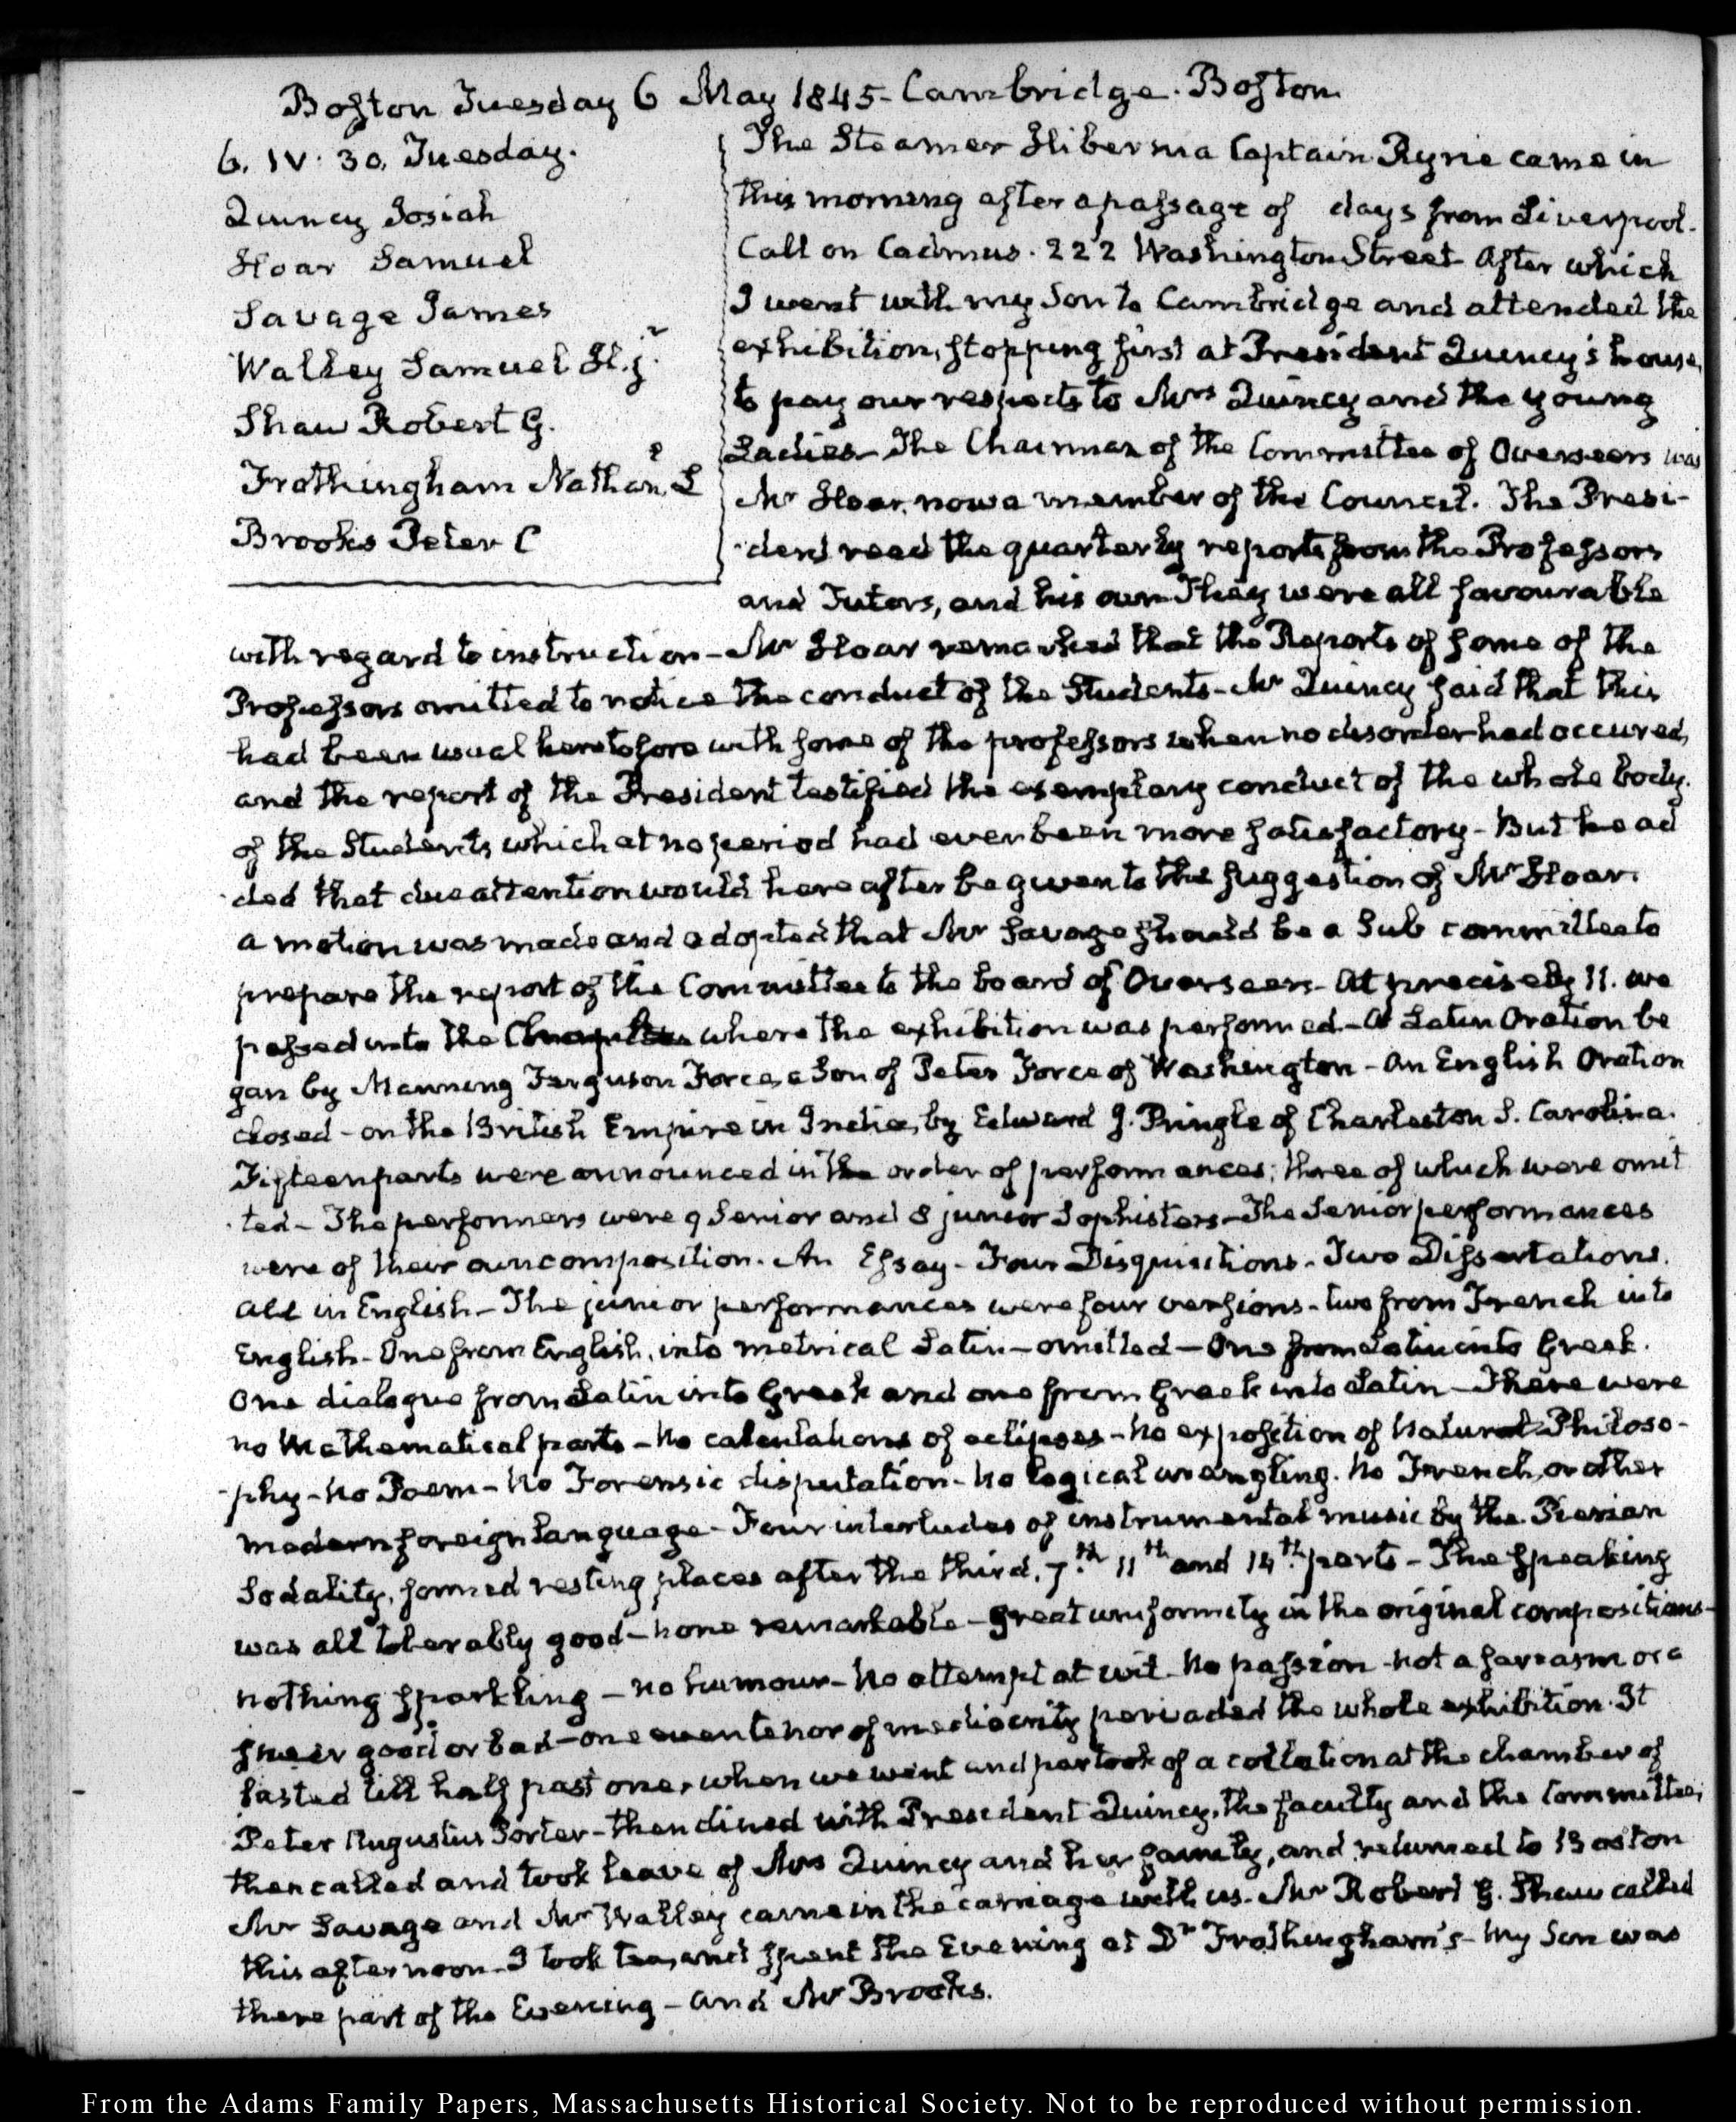 Boston Tuesday 6 May 1845 - Cambridge. Boston
6. IV. 30. Tuesday.
Quincy Josiah
Hoar Samuel
Savage James
Walley Samuel H. jr.
Shaw Robert G.
Frothingham Nathanl. L
Brooks Peter C
The Steamer Hibernia Captain Ryrie came in
this morning after a passage of days from Liverpool.
Call on Cadmus. 222 Washington Street After which
I went with my Son to Cambridge and attended the
exhibition, stopping first at President Quincy's house,
to pay our respects to Mrs Quincy and the young
Ladies - The Chairman of the Committee of Overseers was
Mr Hoar, now a member of the Council. The Presi-
dent read the quarterly reports from the Professors
and Tutors, and his own They were all favourable
with regard to instruction - Mr Hoar remarked that the Reports of some of the
Professors omitted to notice the conduct of the Students - Mr Quincy said that this
had been usual heretofore with some of the professors when no disorder had occured,
and the report of the President testified the exemplary conduct of the whole body
of the Students, which at no period had ever been more satisfactory - But he ad
ded that due attention would hereafter be given to the suggestion of Mr Hoar.
a motion was made and adopted that Mr Savage should be a Sub committee to
prepare the report of the Committee to the board of Overseers - At precisely 11. we
passed into the where the exhibition was performed - A Latin Oration be
gan by Manning Ferguson Force, a Son of Peter Force of Washington - An English Oration
closed - on the British Empire in India, by Edward J. Pringle of Charleston S. Carolina.
Fifteen parts were announced in the order of performances; three of which were omit
ted - The performers were 9 Senior and 8 junior Sophisters - The Senior performances
were of their own composition. An Essay - Four Disquisitions - Two Dissertations.
all in English - The junior performances were four versions - two from French into
English - One from English, into metrical Latin - omitted - One from Latin into Greek.
One dialogue from Latin into Greek and one from Greek into Latin - There were
no Mathematical parts - No calculations of eclipses - no exposition of Natural Philoso-
phy - No Poem - No Forensic disputation - No logical wrangling. No French, or other
modern foreign language - Four interludes of instrumental music by the Pierian
Sodality, formed resting places after the third, 7th 11th and 14th parts - The speaking
was all tolerably good - none remarkable - great uniformity in the original compositions -
nothing sparkling - no humour - No attempt at wit - No passion - not a sarcasm or a
sneer good or bad - one even tenor of mediocrity pervaded the whole exhibition. It
lasted till half past one, when we went and partook of a collation at the chamber of
Peter Augustus Porter - then dined with President Quincy, the faculty and the Committee;
then called and took leave of Mrs Quincy and her family, and returned to Boston
Mr Savage and Mr Walley came in the carriage with us - Mr Robert G. Shaw called
this afternoon - I took tea, and spent the Evening at Dr Frothingham's - My Son was
there part of the Evening - and Mr Brooks.
From the Adams Family Papers, Massachusetts Historical Society. Not to be reproduced without permission.